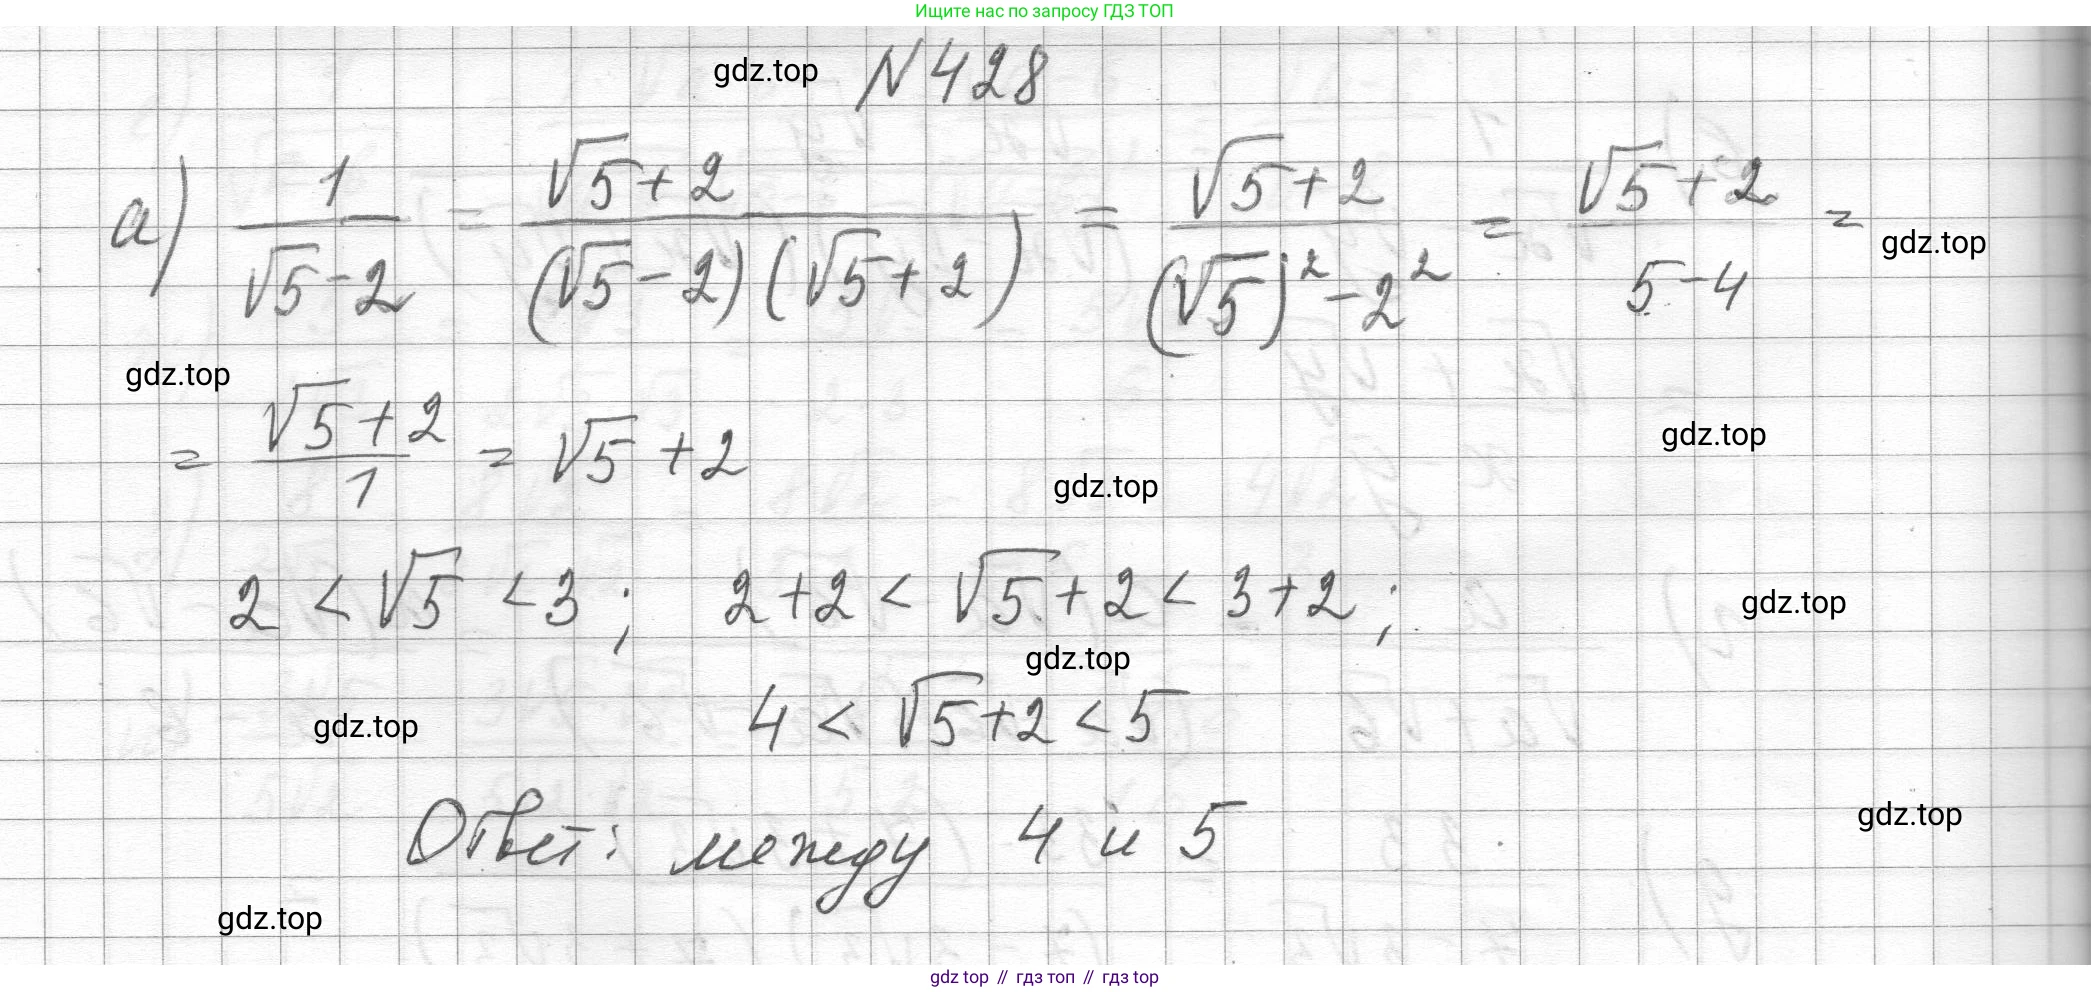 Ищите нас по запросу ГДЗ ТОП
gdz.top № 428
а) 1/(√5-2) = (√5+2)/((√5-2)(√5+2)) = (√5+2)/((√5)²-2²) = (√5+2)/(5-4) =
gdz.top
gdz.top
= (√5+2)/1 = √5+2
gdz.top
gdz.top
2 < √5 < 3; 2+2 < √5+2 < 3+2;
gdz.top
gdz.top
4 < √5+2 < 5
gdz.top
Ответ: между 4 и 5
gdz.top
gdz.top
gdz top // гдз топ // гдз top